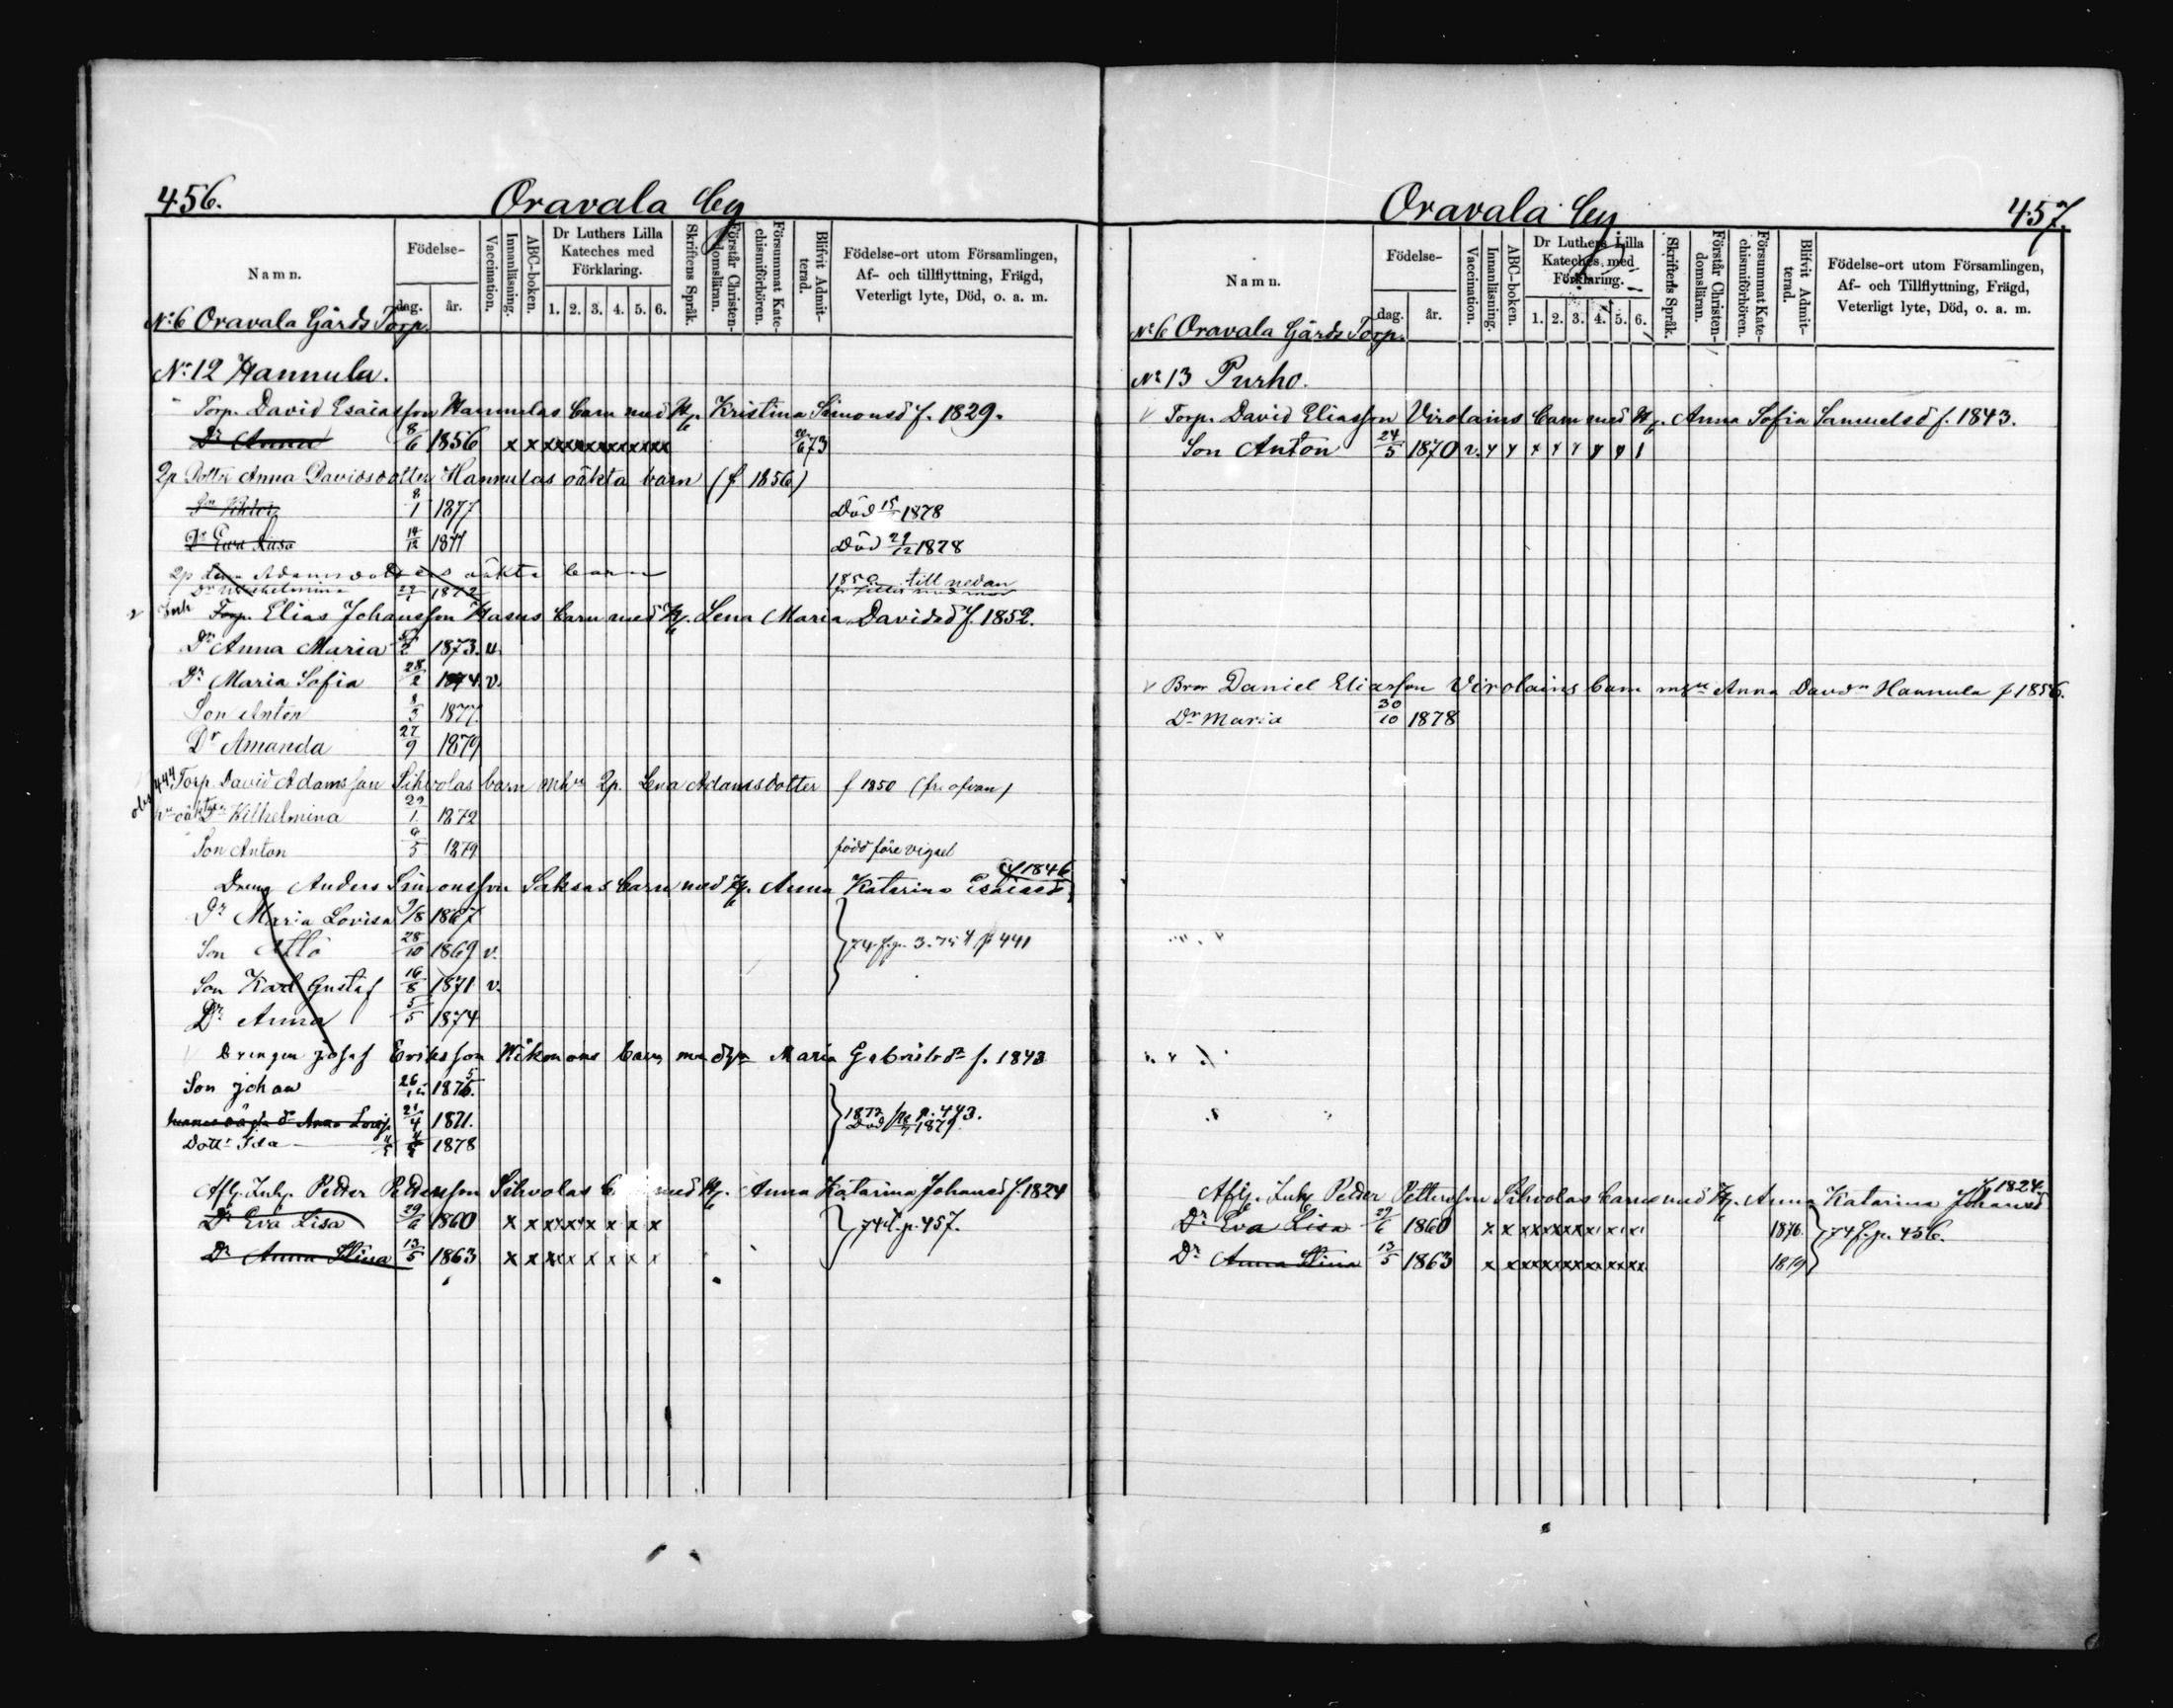 456.
Oravala by
Namn.
Födelse-
dag.
år.
Vaccination.
Innanläsning.
ABC-boken.
Dr Luthers Lilla Kateches med Förklaring.
1. 2. 3. 4. 5. 6.
Skriftens Språk.
Förstår Christendomsläran.
Försummat Katechismiförhören.
Blifvit Admitterad.
Födelse-ort utom Församlingen, Af- och tillflyttning, Frägd, Veterligt lyte, Död, o. a. m.
No 6 Oravala Gårds Torp.
No 12 Hannula.
Torp. David Esaiasson Hannulas barn med H. Kristina Simonsd f. 1829.
Dr Anna 8/6 1856 x x x x x x x x x x x 73
2p Dottr Anna Davidsdotter Hannulas oäkta barn (f 1856)
Son Viktor 8/1 1877 Död 15/ 1878
Dr Eva Lisa 14/12 1877 Död 29/12 1878
2p Adamsdotters oäkta barn 1850 till nedan
Dr Wilhelmina 29/1 1872
Inh Torp. Elias Johansson Hasus barn med H. Lena Maria Davidsd f. 1852.
Dr Anna Maria /2 1873. v.
Dr Maria Sofia 28/2 1874. v.
Son Anton 8/3 1877
Dr Amanda 27/9 1879
444 Torp David Adamsson Sihvolas barn m hu 2p. Lena Adamsdotter f 1850 (fr. ofvan)
Dr Wilhelmina 29/1. 1872
Son Anton 9/5 1879 född före vigsel
Dreng Anders Simonsson Saksas barn med H. Anna Katarina Esaiasd f 1846
Dr Maria Lovisa 9/8 1867
Son Otto 28/10 1869 v. 74. f. p. 3. 75 t p 441
Son Karl Gustaf 16/8 1871 v.
Dr Anna 5/5 1874
Drengen Josef Eriksson Hikonens barn med hu Maria Gabrielsdr f. 1843
Son Johan 26/ 1875.
hennes oägta dr Anna Lovisa 21/4 1871. 1872 fr p. 443. Död 18/7 1879
Dottr Ida 4/5 1878
Afl. Inh. Petter Pettersson Sihvolas med H. Anna Katarina Johansd f. 1824
Dr Eva Lisa 29/6 1860 x x x x x x x x 74 t. p. 457.
Dr Anna Stina 13/5 1863 x x x x x x x x
Oravala by
457.
Namn.
Födelse-
dag.
år.
Vaccination.
Innanläsning.
ABC-boken.
Dr Luthers Lilla Kateches med Förklaring.
1. 2. 3. 4. 5. 6.
Skriftens Språk.
Förstår Christendomsläran.
Försummat Katechismiförhören.
Blifvit Admitterad.
Födelse-ort utom Församlingen, Af- och Tillflyttning, Frägd, Veterligt lyte, Död, o. a. m.
No 6 Oravala Gårds Torp.
No 13 Purho.
v Torp. David Eliasson Virolains barn med H. Anna Sofia Samuelsd f. 1843.
Son Anton 24/5 1870 v.
v Bror Daniel Eliasson Virolains barn m hu Anna Davdr Hannula f 1856.
Dr Maria 30/10 1878
Afl. Inh. Petter Pettersson Sihvolas barn med H. Anna Katarina Johansd f. 1824.
Dr Eva Lisa 29/6 1860 x x x x x x x x x x 1876. 74 f. p. 456.
Dr Anna Stina 13/5 1863 x x x x x x x x x x 1879